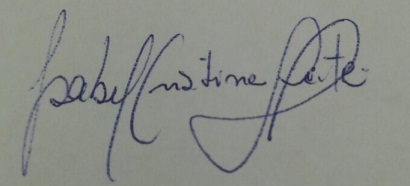 Isabel Cristina Leite